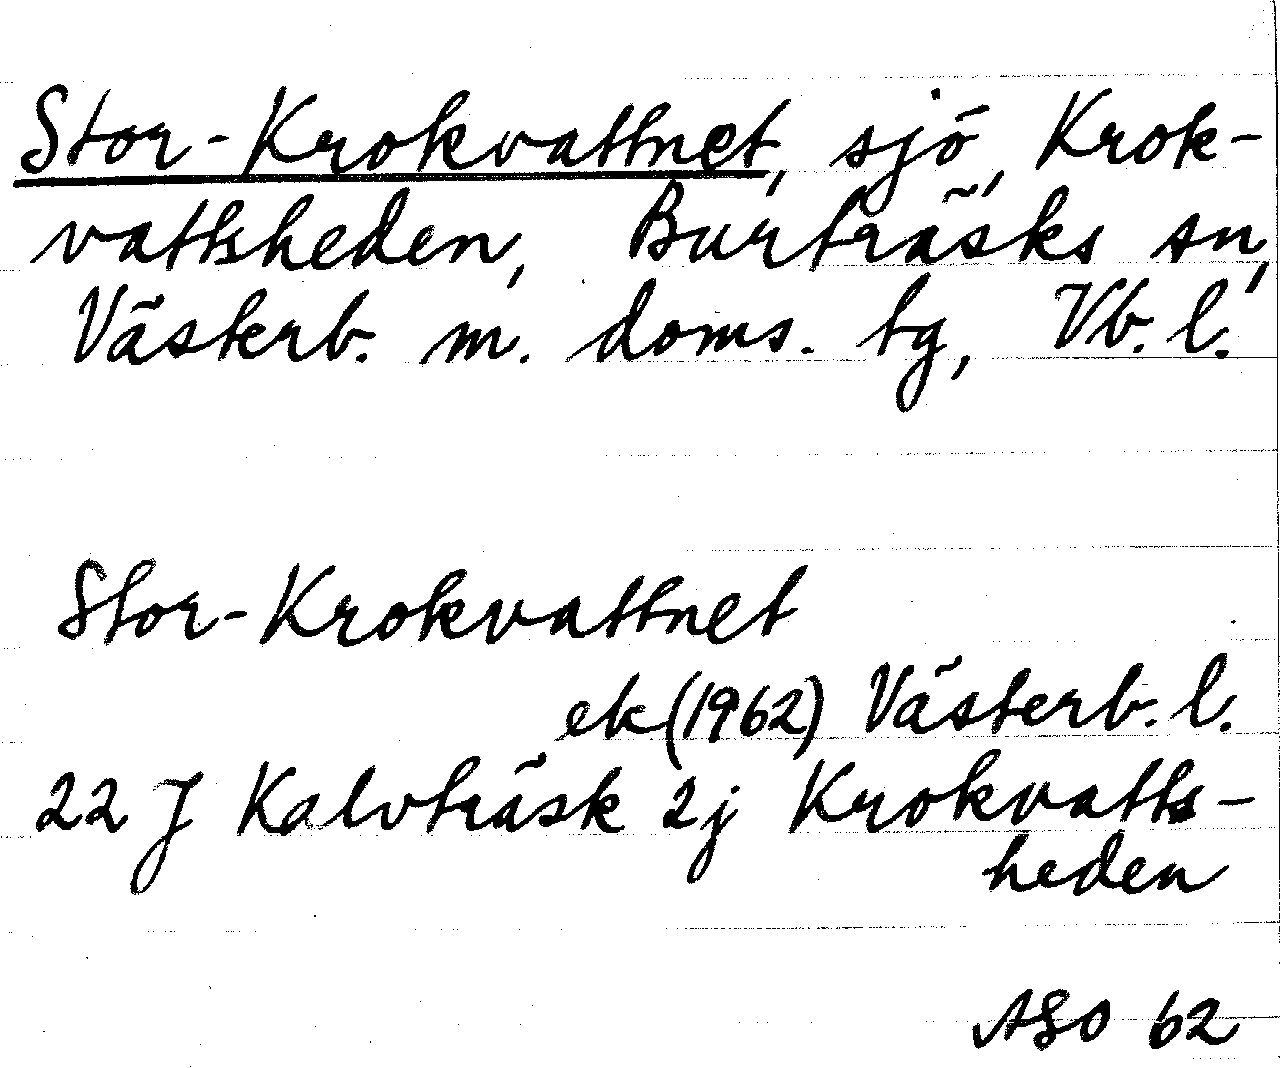 Stor-Krokvattnet, sjö, Krok-
vattsheden, Burträsks sn,
Västerb. m. doms. tg, Vb. l.
Stor-Krokvattnet
ek (1962) Västerb. l.
22 J Kalvträsk 2j Krokvatts-
heden
ASO 62